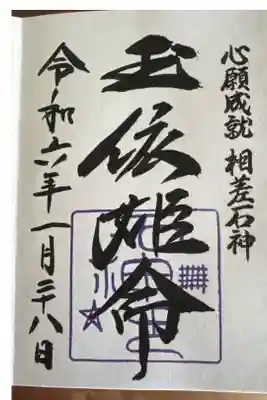 心願成就 相差石神
玉依姫命
令和六年一月二十八日